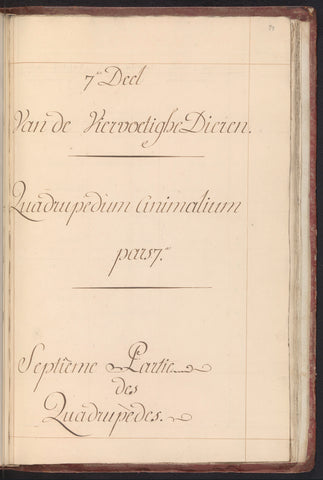 7e Deel
Van de Viervoetighe Dieren.
Quadrupedium Animalium
pars 7.a
Septième Partie
des
Quadrupèdes.